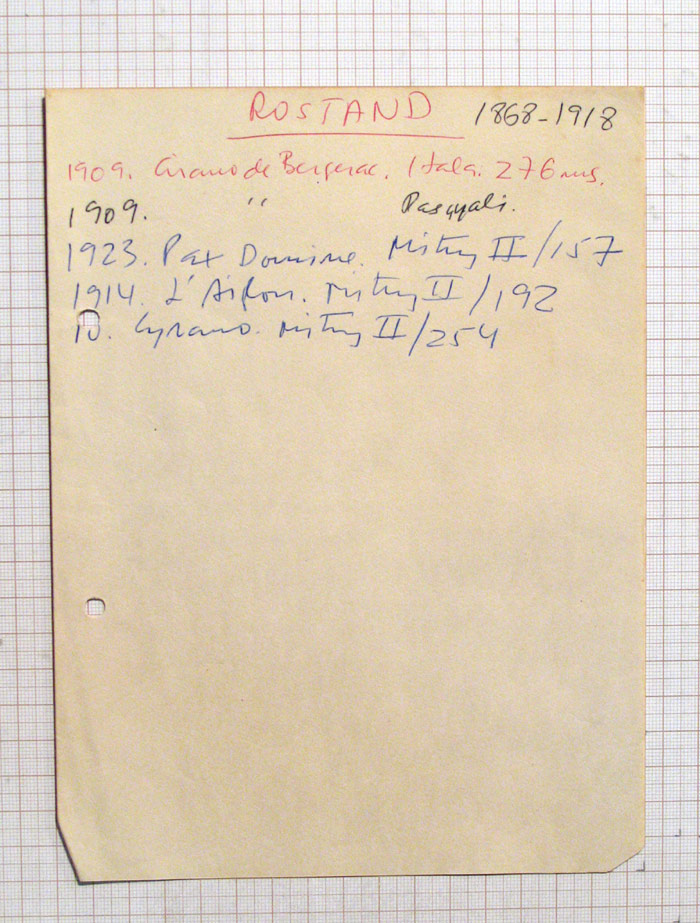 ROSTAND 1868-1918
1909. Cirano de Bergerac. Itala. 276 ms.
1909. " Pasquali.
1923. Pax Domine. Mitry II/157
1914. L'Aiglon. Mitry II/192
Cyrano. Mitry II/254